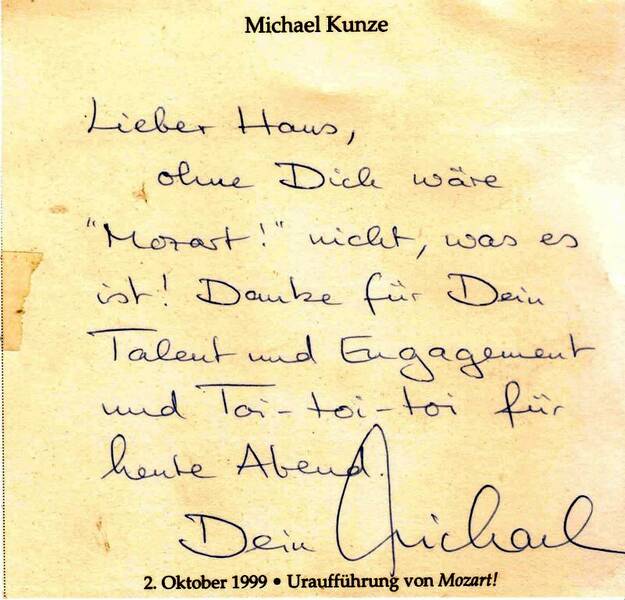 Michael Kunze
Lieber Hans,
ohne Dich wäre
"Mozart!" nicht, was es
ist! Danke für Dein
Talent und Engagement
und Toi-toi-toi für
heute Abend.
Dein Michael
2. Oktober 1999 • Uraufführung von Mozart!